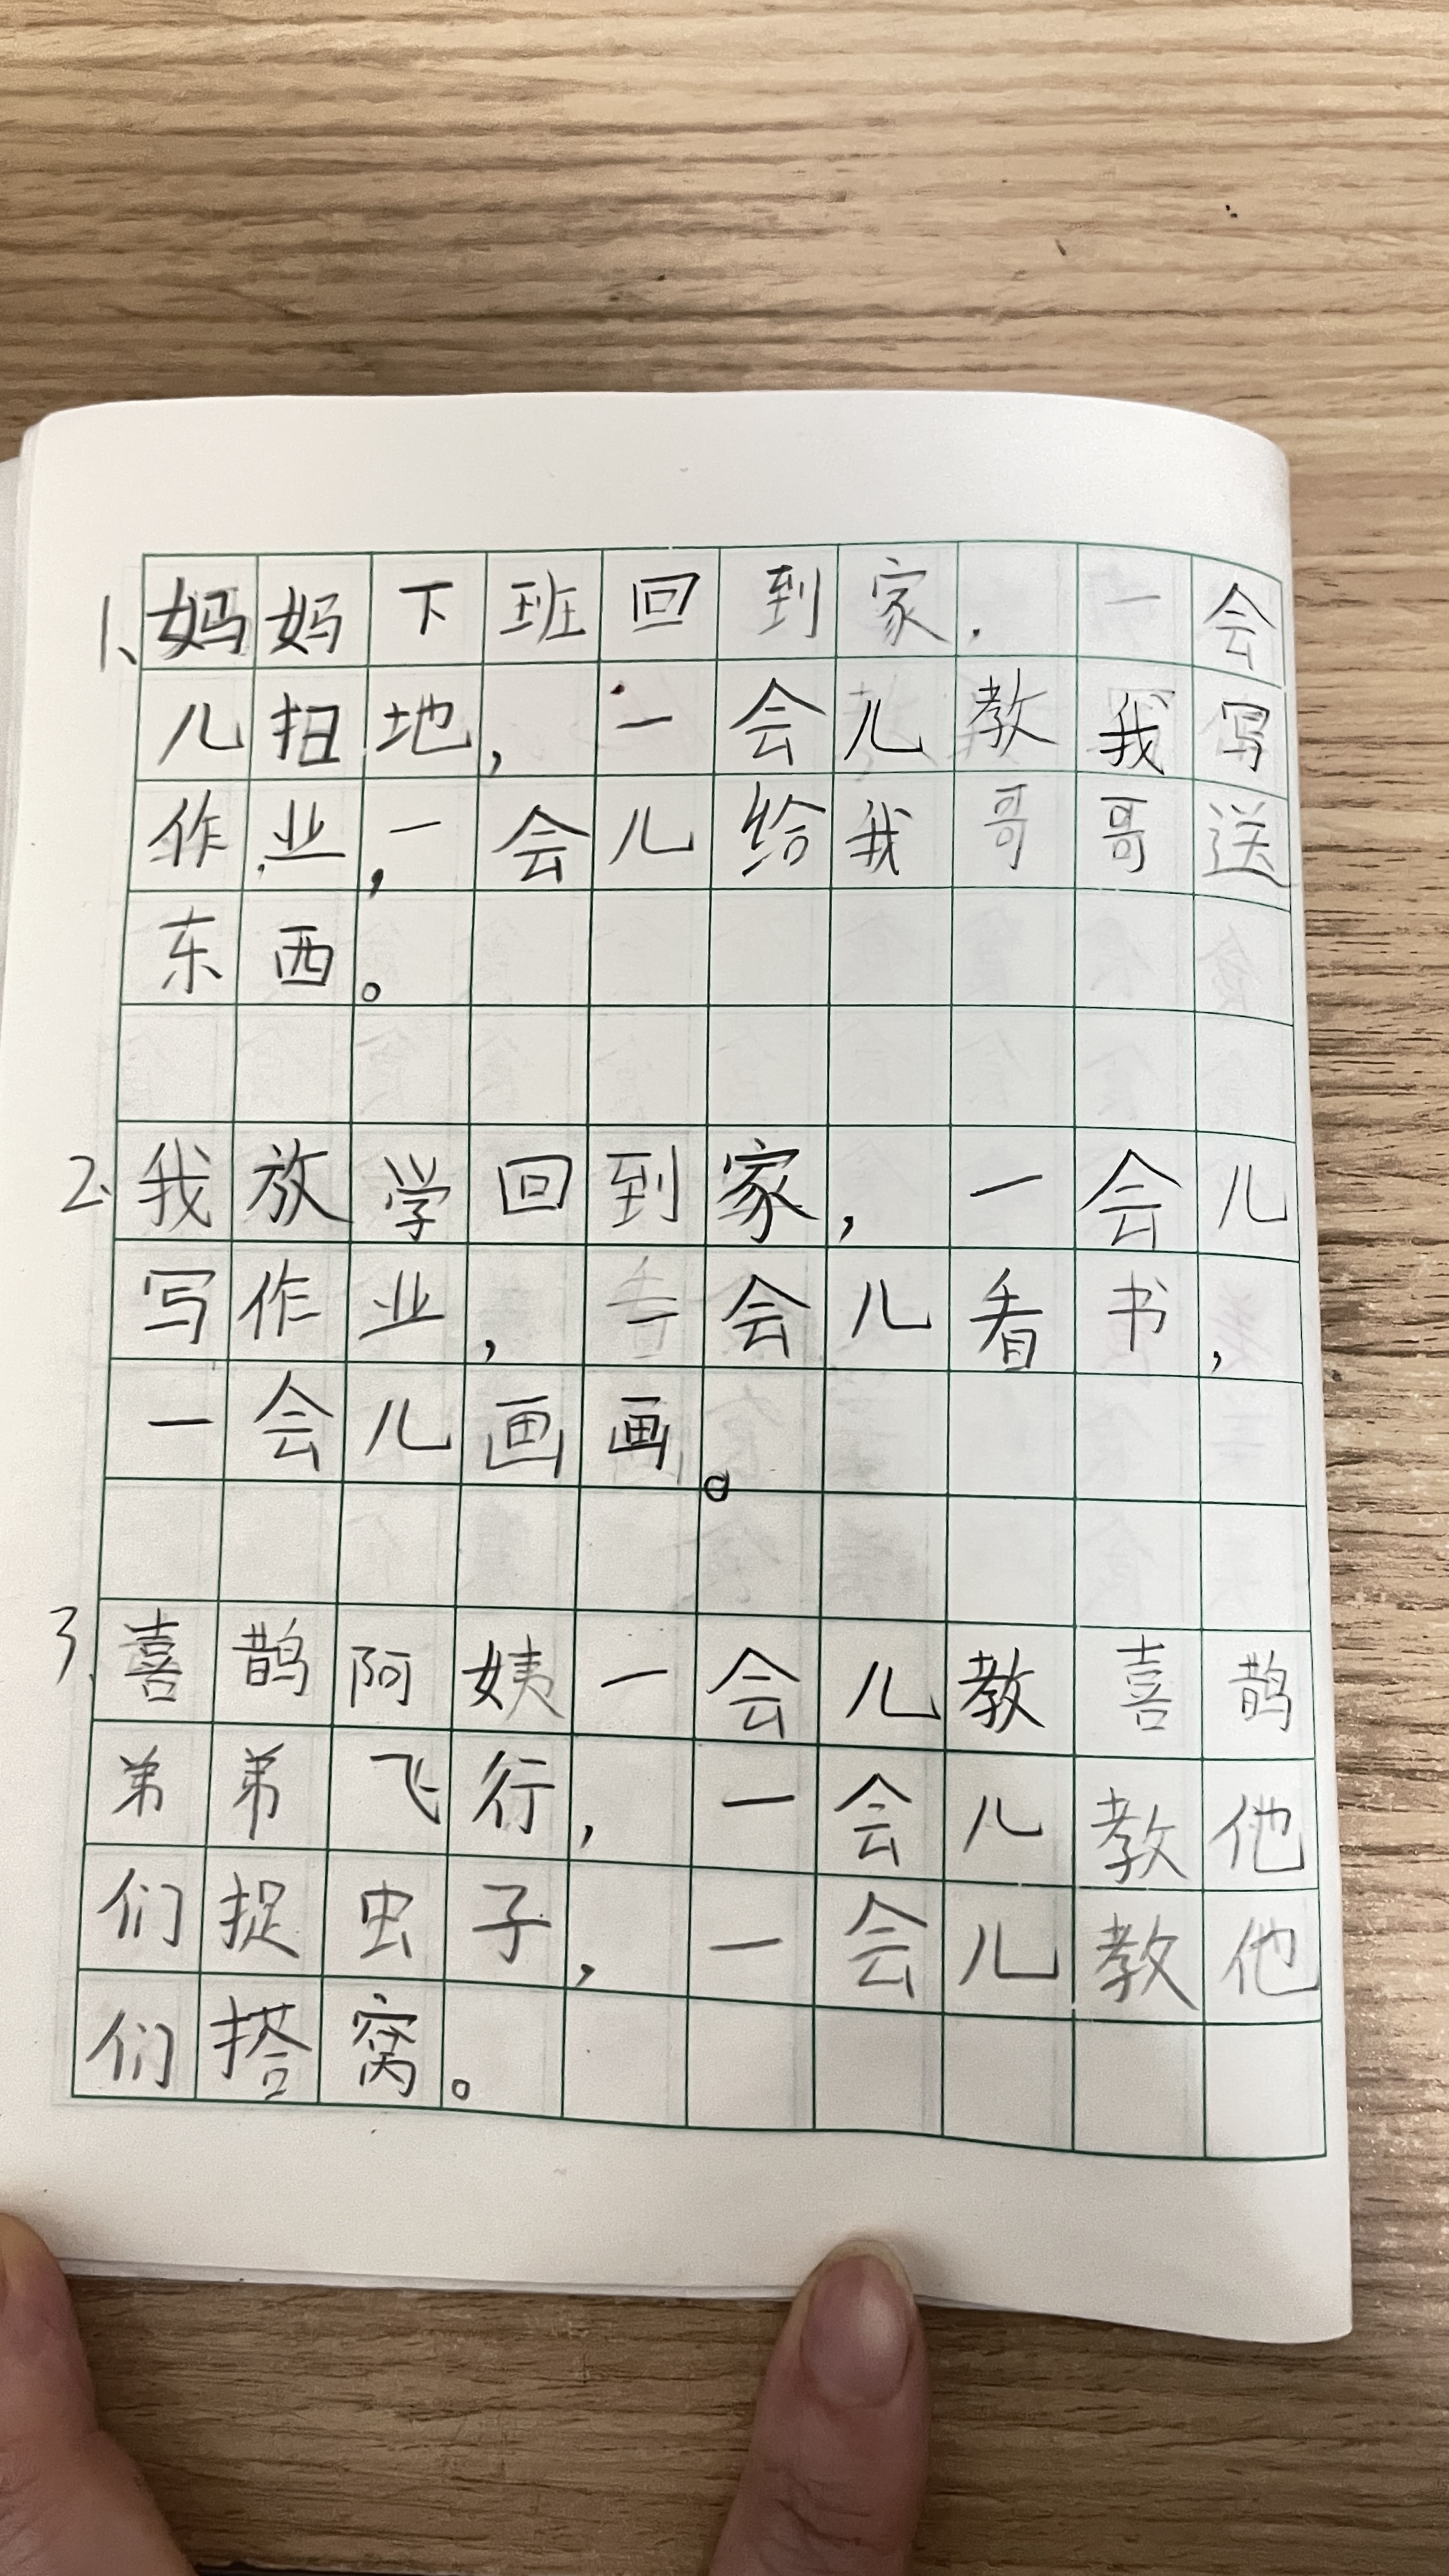 1、妈妈下班回到家，一会
儿扫地，一会儿教我写
作业，一会儿给我哥哥送
东西。
2、我放学回到家，一会儿
写作业，一会儿看书，
一会儿画画。
3、喜鹊阿姨一会儿教喜鹊
弟弟飞行，一会儿教他
们捉虫子，一会儿教他
们搭窝。